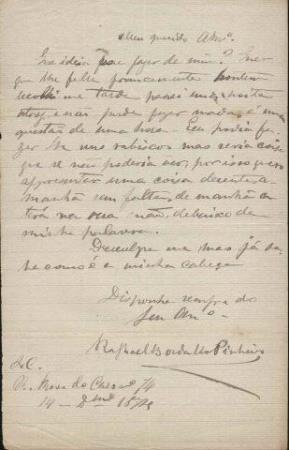 Meu querido Amº.
Que idéia faz de mim? Quer
que lhe falle francamente hontem
me tarde passei
e não pude fazer nada, é uma
questão de uma hora. Eu podia fa-
zer lhe uns rabiscos mas seria coisa
que se não poderia ver, por isso quero
appresentar uma coisa decente. A-
manhã sem falta, de manhã es-
tará na sua mão, debaixo da
minha palavra.
Desculpe me, mas já sa-
be como é a minha cabeça
Disponha sempre do
Seu Amº.
Raphael Bordallo Pinheiro
S. C.
74
14